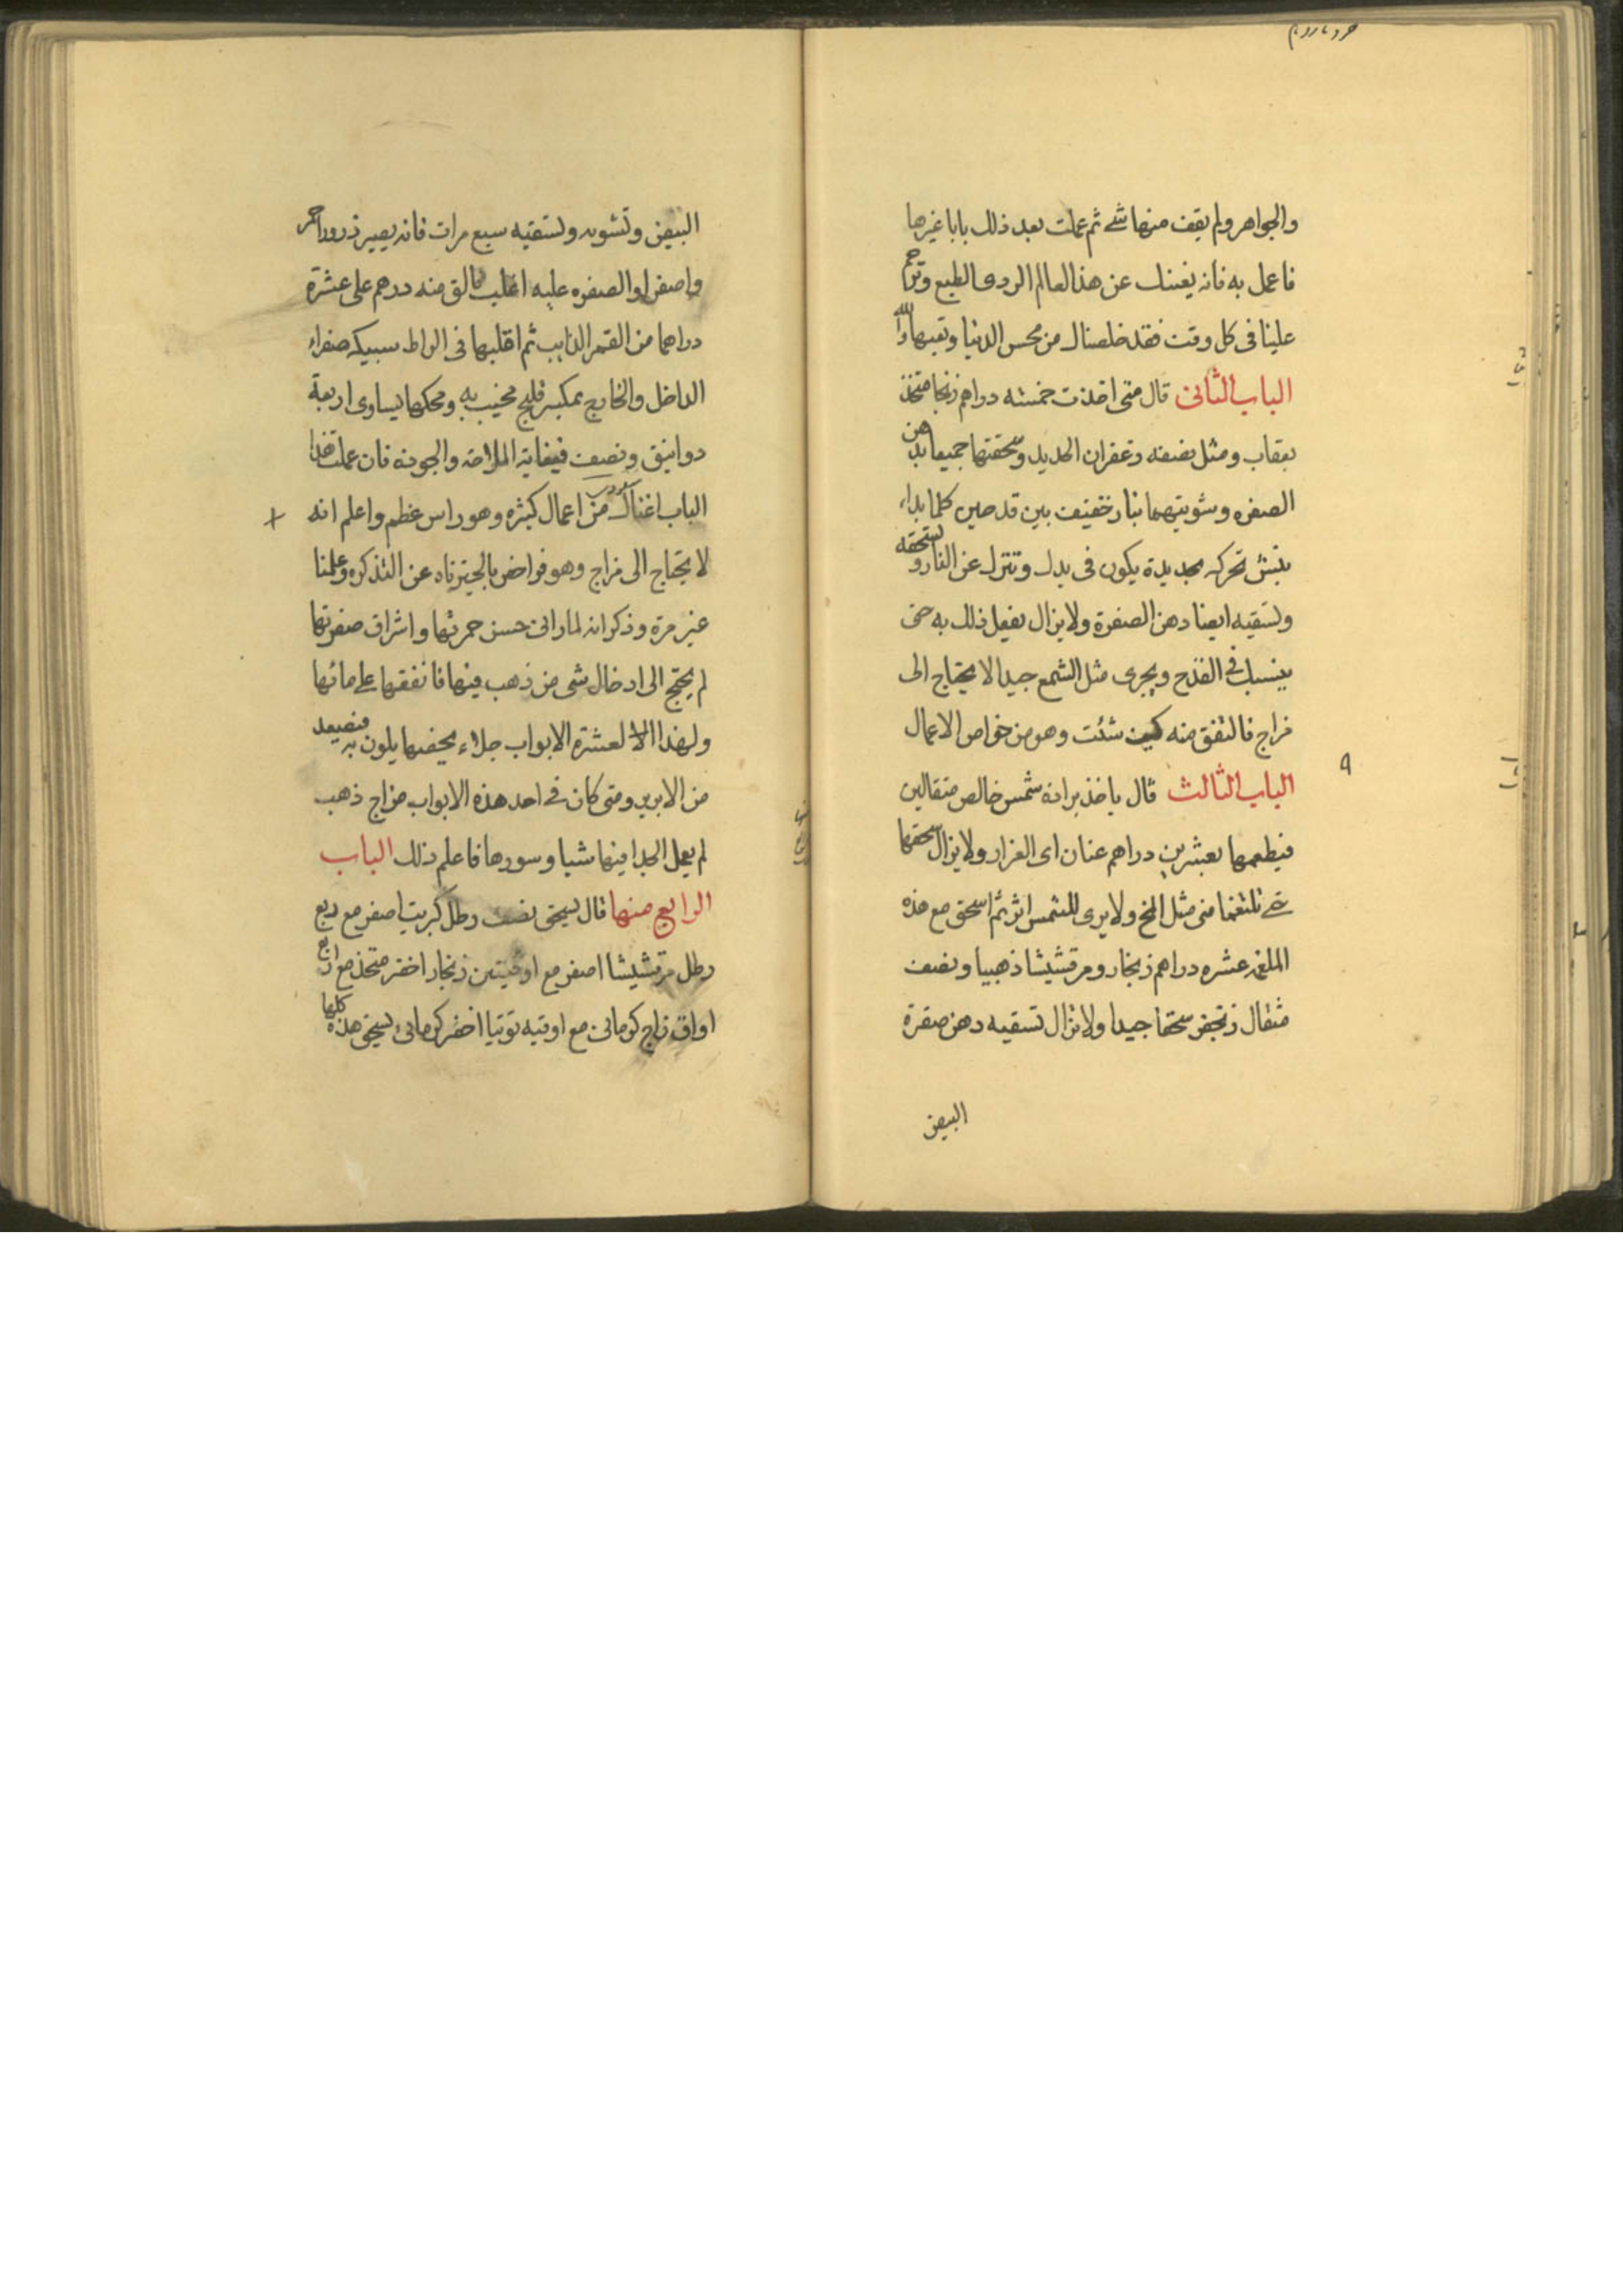 والجواهر ولم يقف منها شے ثم عملت بعد ذلك بابا غيرها
فاعمل به فانه يغنيك عن هذا العالم الردى الطبع وترحم
علينا فى كل وقت فقد خلصناك من محس الدنيا وتعبها والله
الباب الثانى قال متى اخذت خمسة دراهم زنجا متخذ
بعقاب ومثل نصفه زعفران الحديد وسحقتها جميعا بدهن
الصفره وشويتهما بنار خفيفه بين قدحين كلما بداء
ينش تحركه بحديدة يكون فى يدك وتنزل عن النار وتسحقه
وتسقيه ايضا دهن الصفرة ولا يزال يفعل ذلك به حتى
ينسبك فى القدح ويجرى مثل الشمع جيدا لا يحتاج الى
مزاج فالتفق منه كيف شئت وهو من خواص الاعمال
٩
الباب الثالث قال ياخذ برادة شمس خالص مثقالين
فيطعمها بعشرين دراهم عنان اى الفرار ولا يزال سحقها
حتى تلتغما منى مثل المخ ولا يرى للشمس اثر ثم اسحق مع هذه
الملغمه عشره دراهم زنجار ومرقشيشا ذهبيا ونصف
مثقال زنجفر سحقا جيدا ولا تزال تسقيه دهن صفرة
البيض
البيض وتشويه وتسقيه سبع مرات فانه يصير ذرورا احمر
واصفرا والصفره عليه اغلب فالق منه درهم على عشرة
دراهما من القمر الذايب ثم اقلبها فى الراط سبيكه صفراء
الداخل والخارج بمكسر مليح مخيب به ومحكها يساوى اربعة
دوانيق ونصف فيغاية الملاحة والجوده فان عملت هذا
الباب اغناك من اعمال كثيره وهو راس عظم واعلم انه
لا يحتاج الى مزاج وهو فواخص بالجيزناه عن التذكره وعلمنا
غير مرة وذكر انه لما رائ حسن حمرتها واشراق صفرتها
لم يحتج الى ادخال شى من ذهب فيها فانفقها على مائها
ولهذا الالعشرة الابواب جلاء يخصها يلون به فنصيعد
من الابريز ومتى كان فے احد هذه الابواب مزاج ذهب
لم يعمل الجلا فيها شيا وسورها فاعلم ذلك الباب
الرابع منها قال يسحق نصف رطل كبريت اصفر مع ربع
رطل مرقشيشا اصفر مع اوقيتين زنجار اخضر متخذ مع اربع
اواق زاج كرمانى مع اوقيه توتيا اخضر كرمانى يسحق هذه كلها